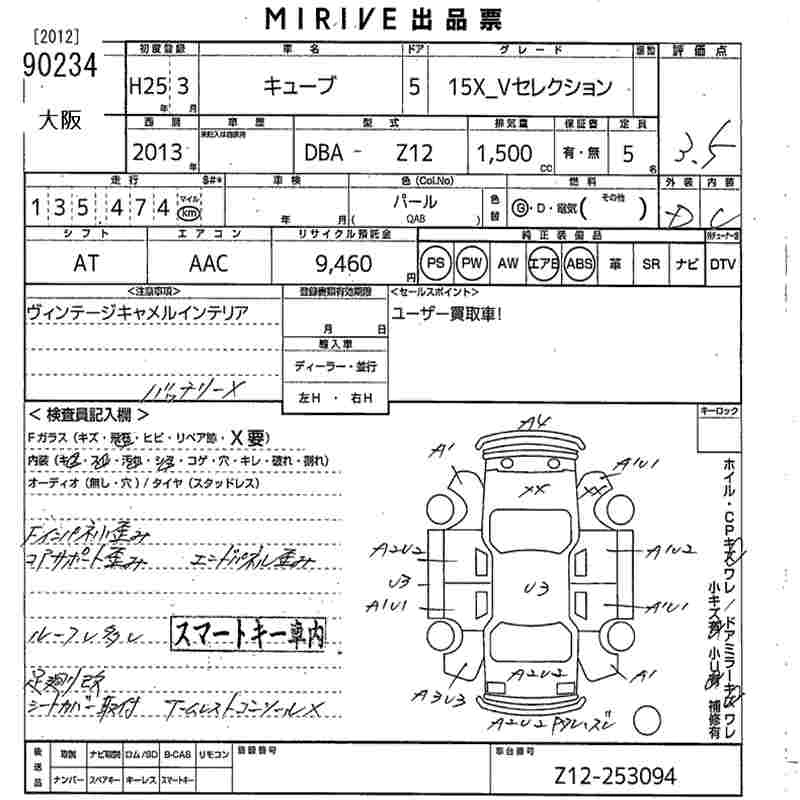 MIRIVE 出品票
[2012]
90234
大阪
初度登録 車名 ドア グレード 評価点
H25 3 キューブ 5 15X_Vセレクション
年 月
3.5
西暦 車歴 型式 排気量 保証書 定員
2013 DBA - Z12 1,500 有・無 5
年 cc 名
走行 車検 色(Col.No) 燃料 外装 内装
135474 マイル km 年 月 パール (QAB) 色替 G・D・電気( その他 ) D C
シフト エアコン リサイクル預託金 純正装備品
AT AAC 9,460円 PS PW AW エアB ABS 革 SR ナビ DTV
<注意事項> 登録書類有効期限 <セールスポイント>
ヴィンテージキャメルインテリア ユーザー買取車!
月 日
輸入車
ディーラー・並行
バッテリーX 左H ・ 右H
キーロック
< 検査員記入欄 >
Fガラス (キズ・飛石・ヒビ・リペア跡・X要)
内装 (キズ・スレ・汚れ・シミ・コゲ・穴・キレ・破れ・割れ)
オーディオ (無し・穴) / タイヤ (スタッドレス)
Fインパネ小歪み
コアサポート歪み エンドパネル歪み
ルーフレ多レ スマートキー車内
足廻り改
シートカバー取付 アームレストコンソールX
A4
A1 A1U1
XX XX
A2U2 A1U2
U3 U3
A1U1 A1U1
A2U2
A3U3 A1
A2U2
ホイル・CPキズワレ/ドアミラーキズワレ
小キズ 小U 補修有
後送品 取説 ナビ取説 ロム/SD B-CAS リモコン 登録番号 車台番号
ナンバー スペアキー キーレス スマートキー
Z12-253094